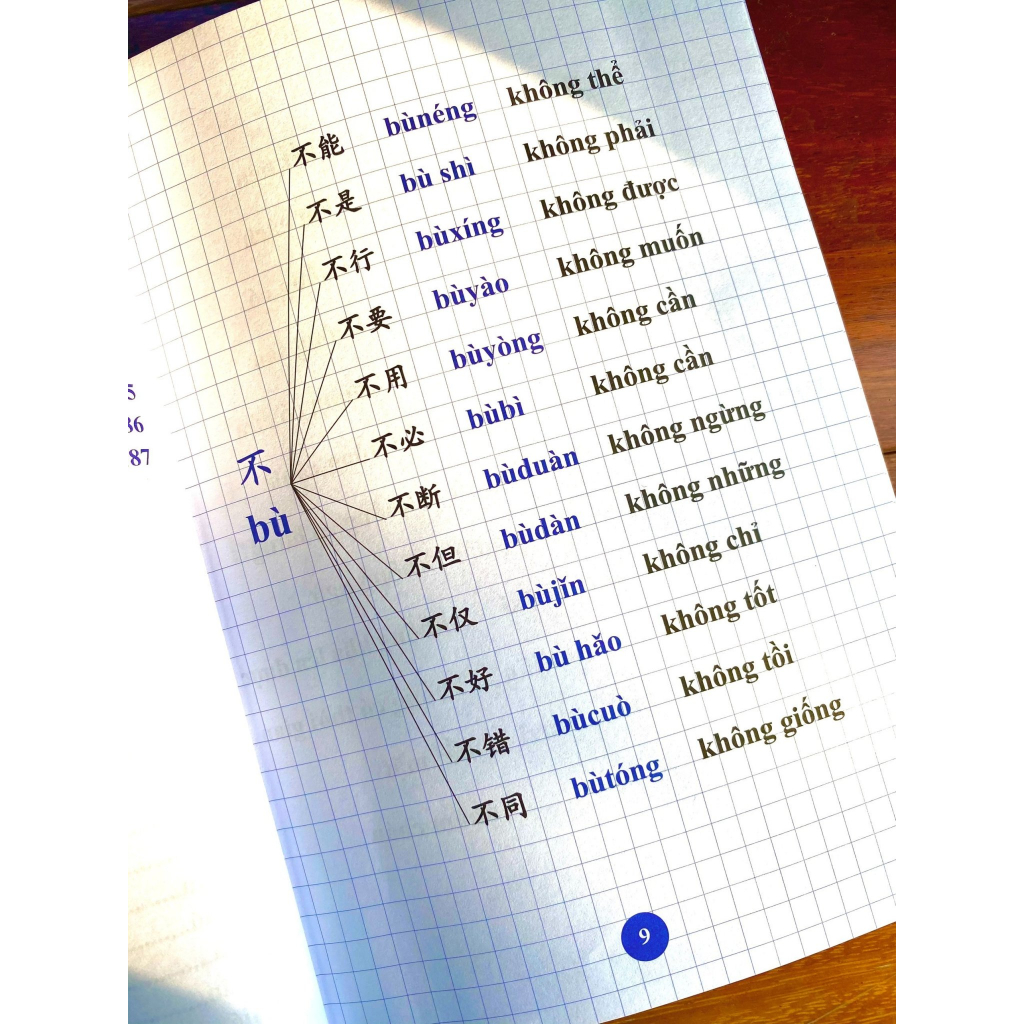 不能 bùnéng không thể
不是 bù shì không phải
不行 bùxíng không được
不要 bùyào không muốn
不用 bùyòng không cần
不必 bùbì không cần
不断 bùduàn không ngừng
不但 bùdàn không những
不仅 bùjǐn không chỉ
不好 bù hǎo không tốt
不错 bùcuò không tồi
不同 bùtóng không giống
不
bù
5
36
87
9